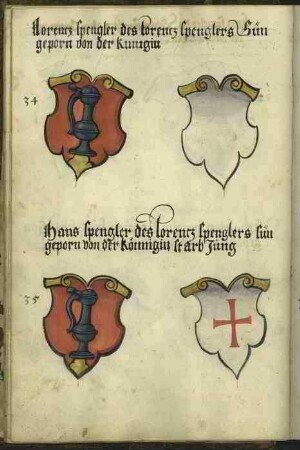 Lorentz spengler des lorentz spenglers Sün
geporn von der Künigin
34
Hans spengler des lorentz spenglers sün
geporn von der Köinnigin starb Jung
35